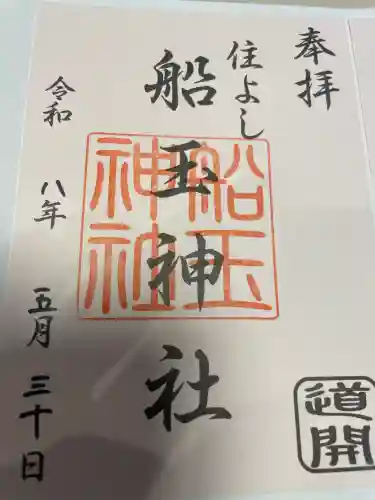 奉拝
住よし
船玉神社
船玉
神社
令和八年五月三十日
道開